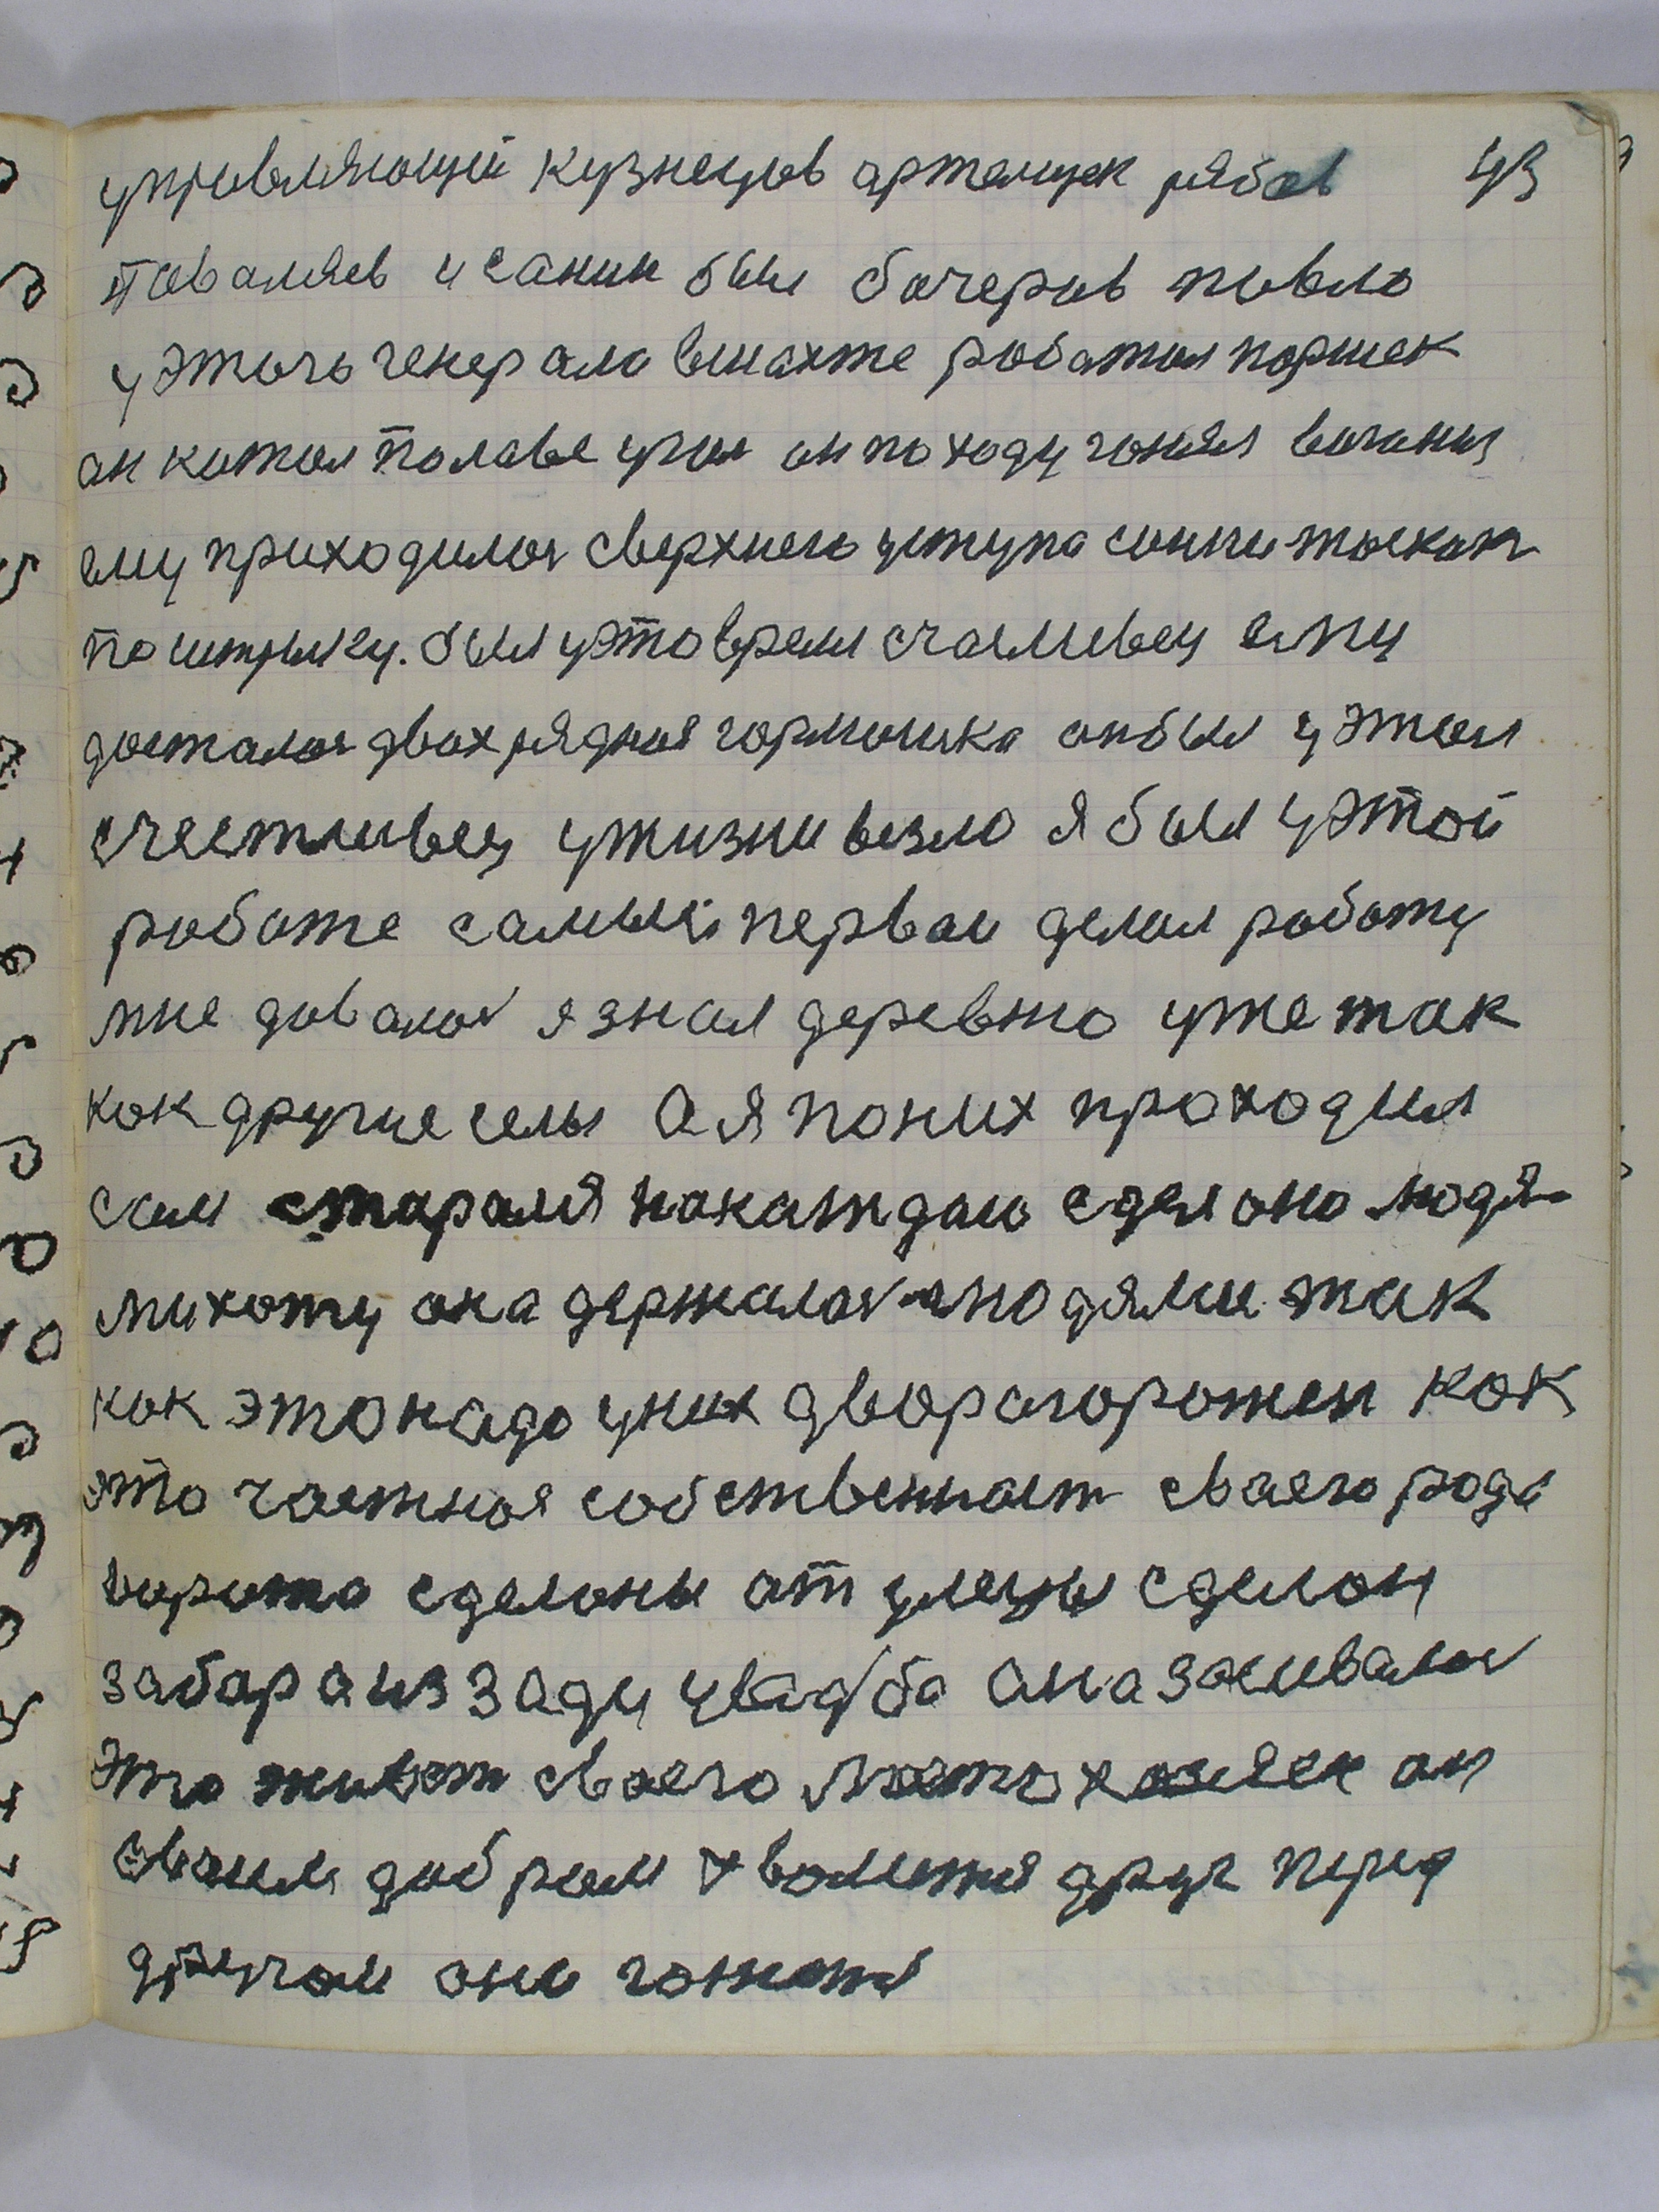 управляющий кузнецов артемцек рябов 43
поваляев исанин был бочеров повло
уэтого генерала вшахте работал паршек
ан катал полавые угол онпоходу гонял вагоны
ему приходилоя сверхнего уступа
по штреку. был уэто время счасливец ему
досталоя двохрядная гормошка онбыл уэтом
счестливец ужизни везло я был уэтой
работе самый первои делал работу
мне давалоя я знал деревню уже так
как другие селы а я поних проходил
сам стараля покаждаю сделоно людя
михоту она держалоя людями так
как это надо уних двор агорожен как
это частная собственаст сваего рода
варота сделоны от улецы сделан
забор а иззади усадба ана засивалоя
это живот сваего места хозяек ан
сваим добром хволитя друг перед
другом они гожотя